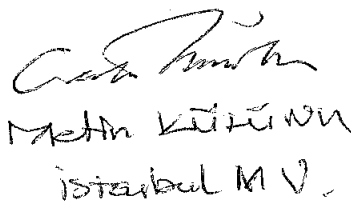 Metin Külünk
İstanbul MV.